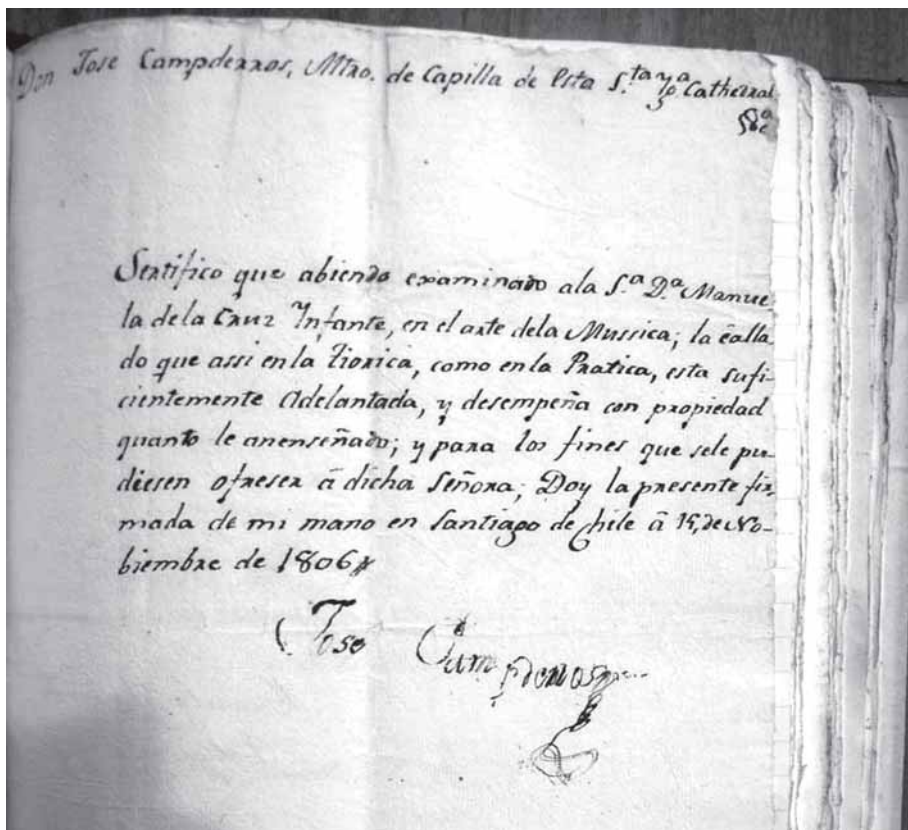 Don Jose Campderros, Mtro. de Capilla de esta S.ta Yg.a Cathedral
&c.a
Sertifico que abiendo examinado ala S.a D.a Manue
la dela Cruz Infante, en el arte dela Mussica; la ealla
do que assi en la Tiorica, como en la Pratica, esta sufi-
cientemente Adelantada, y desempeña con propiedad
quanto le anenseñado; y para los fines que sele pu-
diesen ofreser â dicha Señora; Doy la presente fir-
mada de mi mano en Santiago de Chile â 15, de No-
biembre de 1806
Jose Campderros